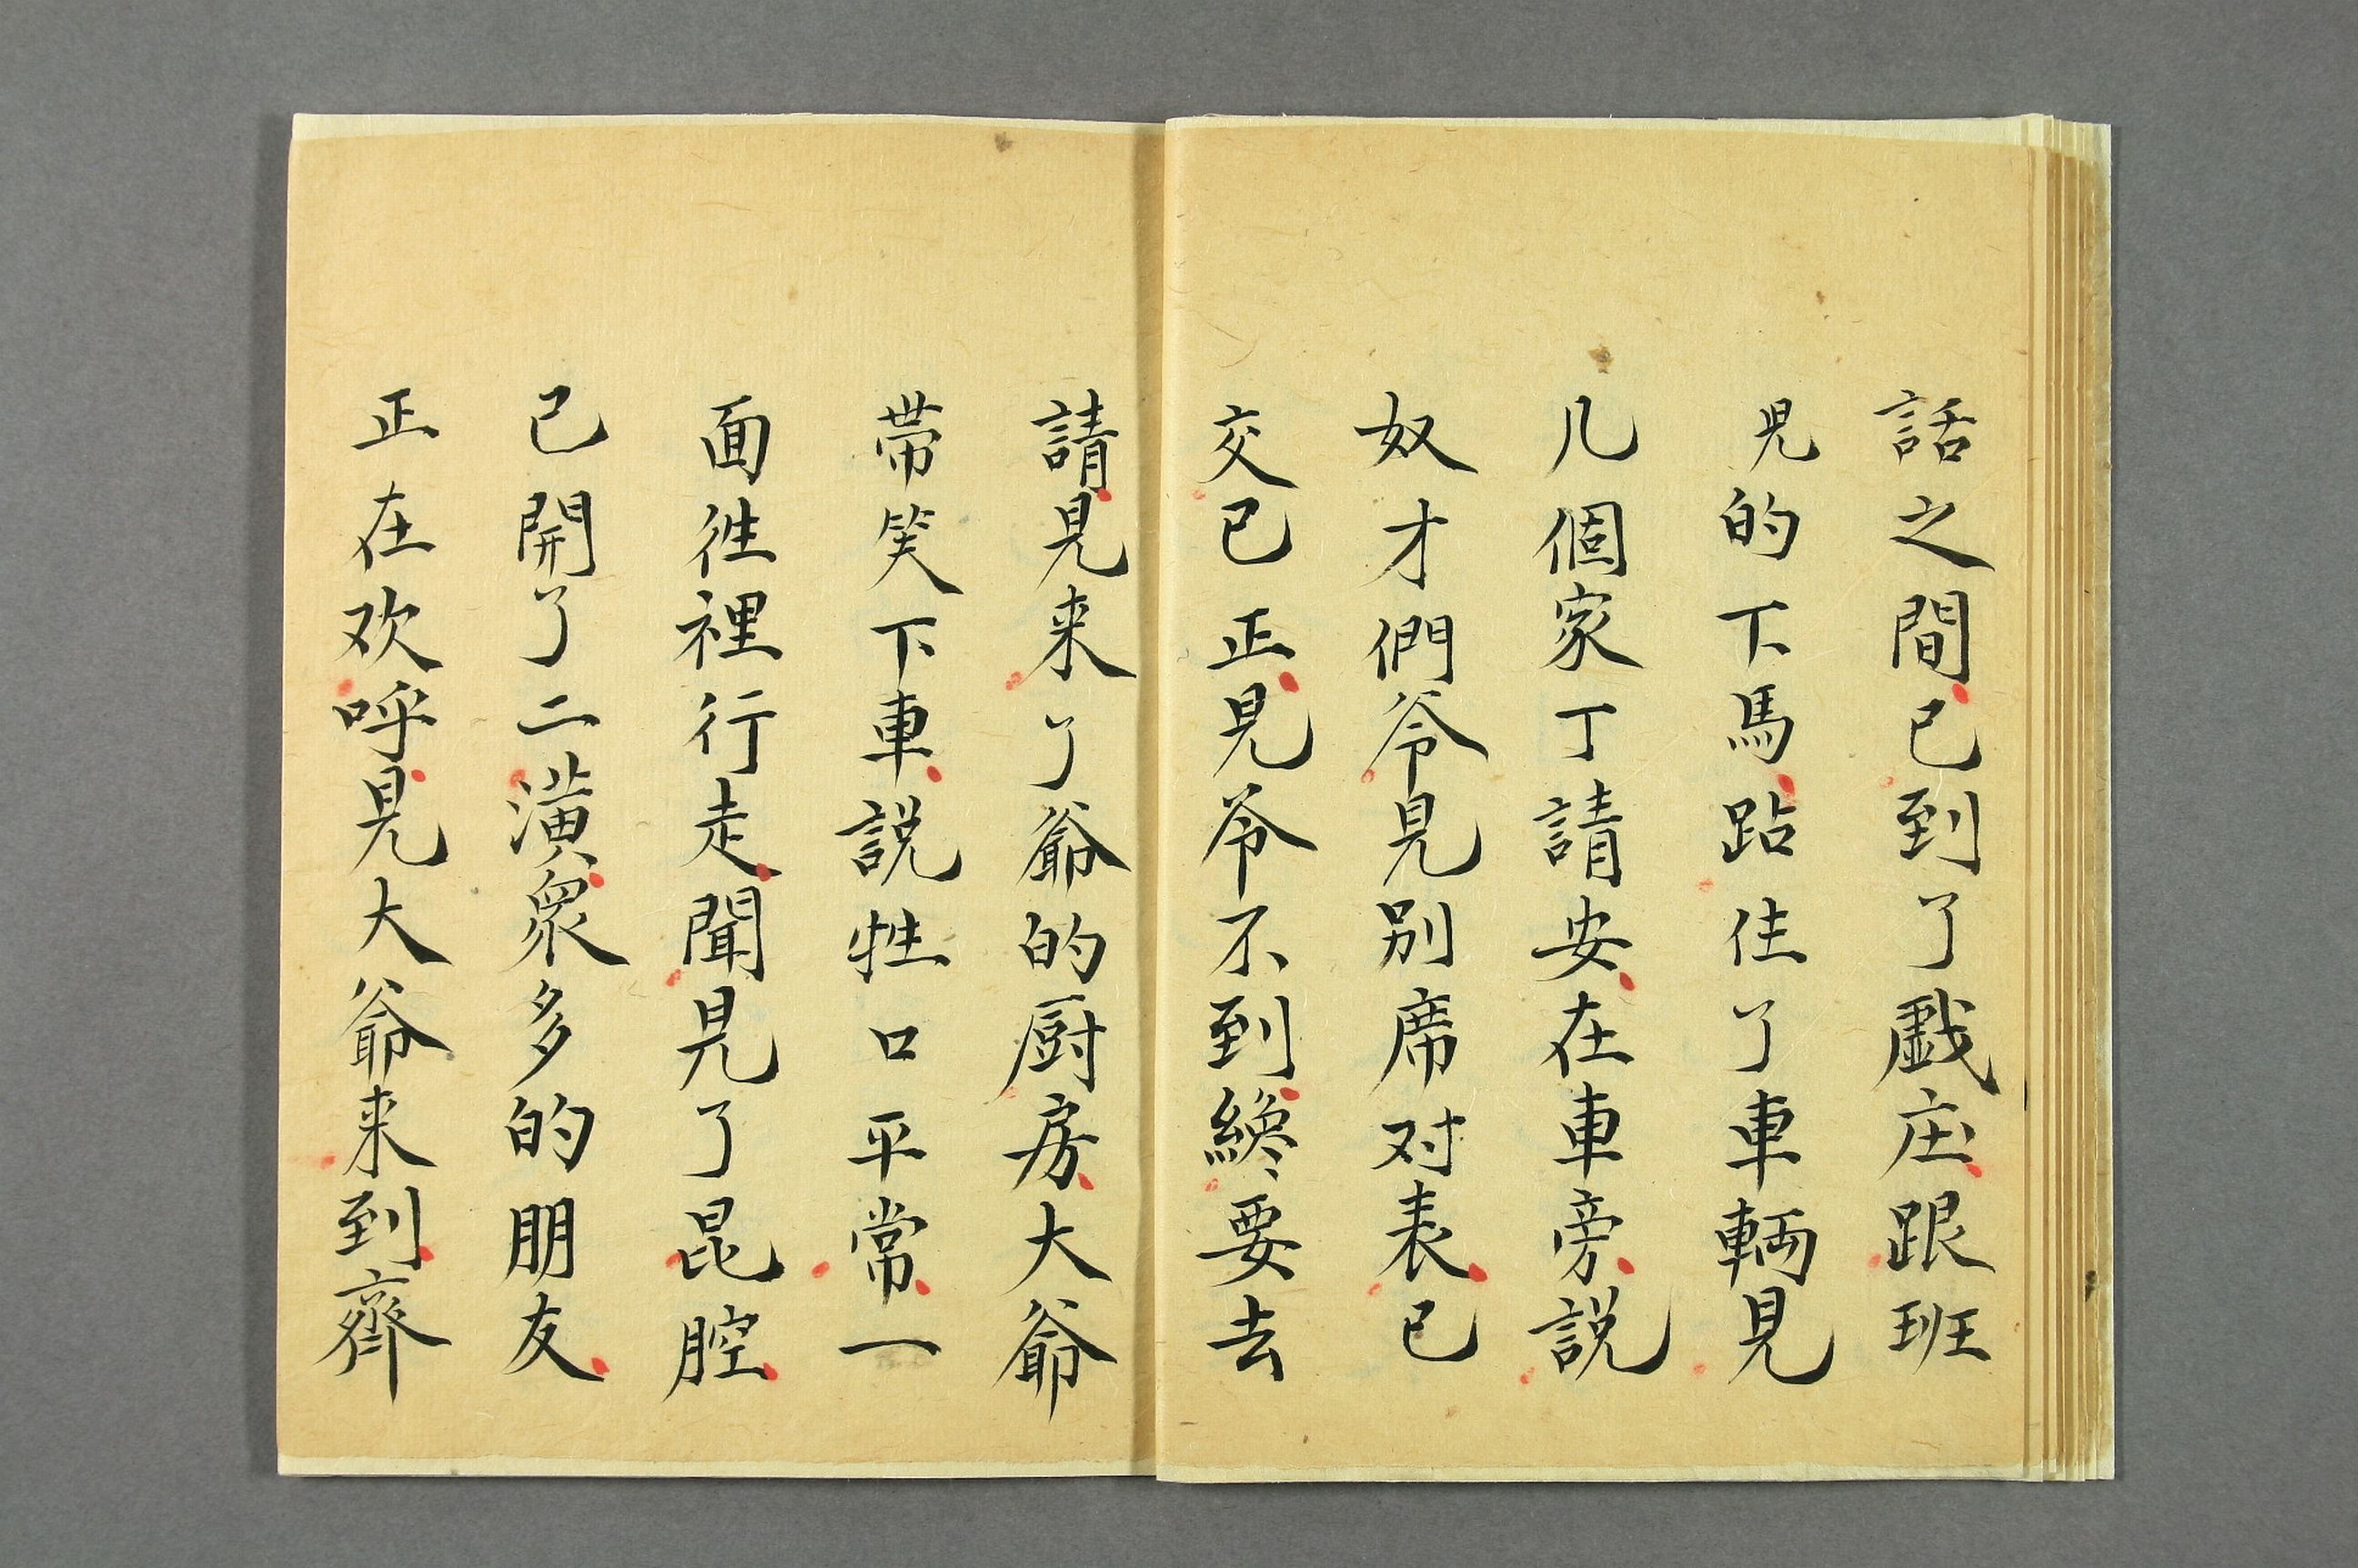 話之間已到了戲庄跟班
児的下馬跕住了車輌見
几個家丁請安在車旁説
奴才們爷見別席对表已
交已正見爷不到纔要去
請見来了爺的厨房大爺
带笑下車説牲口平常一
面徃裡行走聞見了昆腔
已開了二潢衆多的朋友
正在欢呼見大爺来到齊